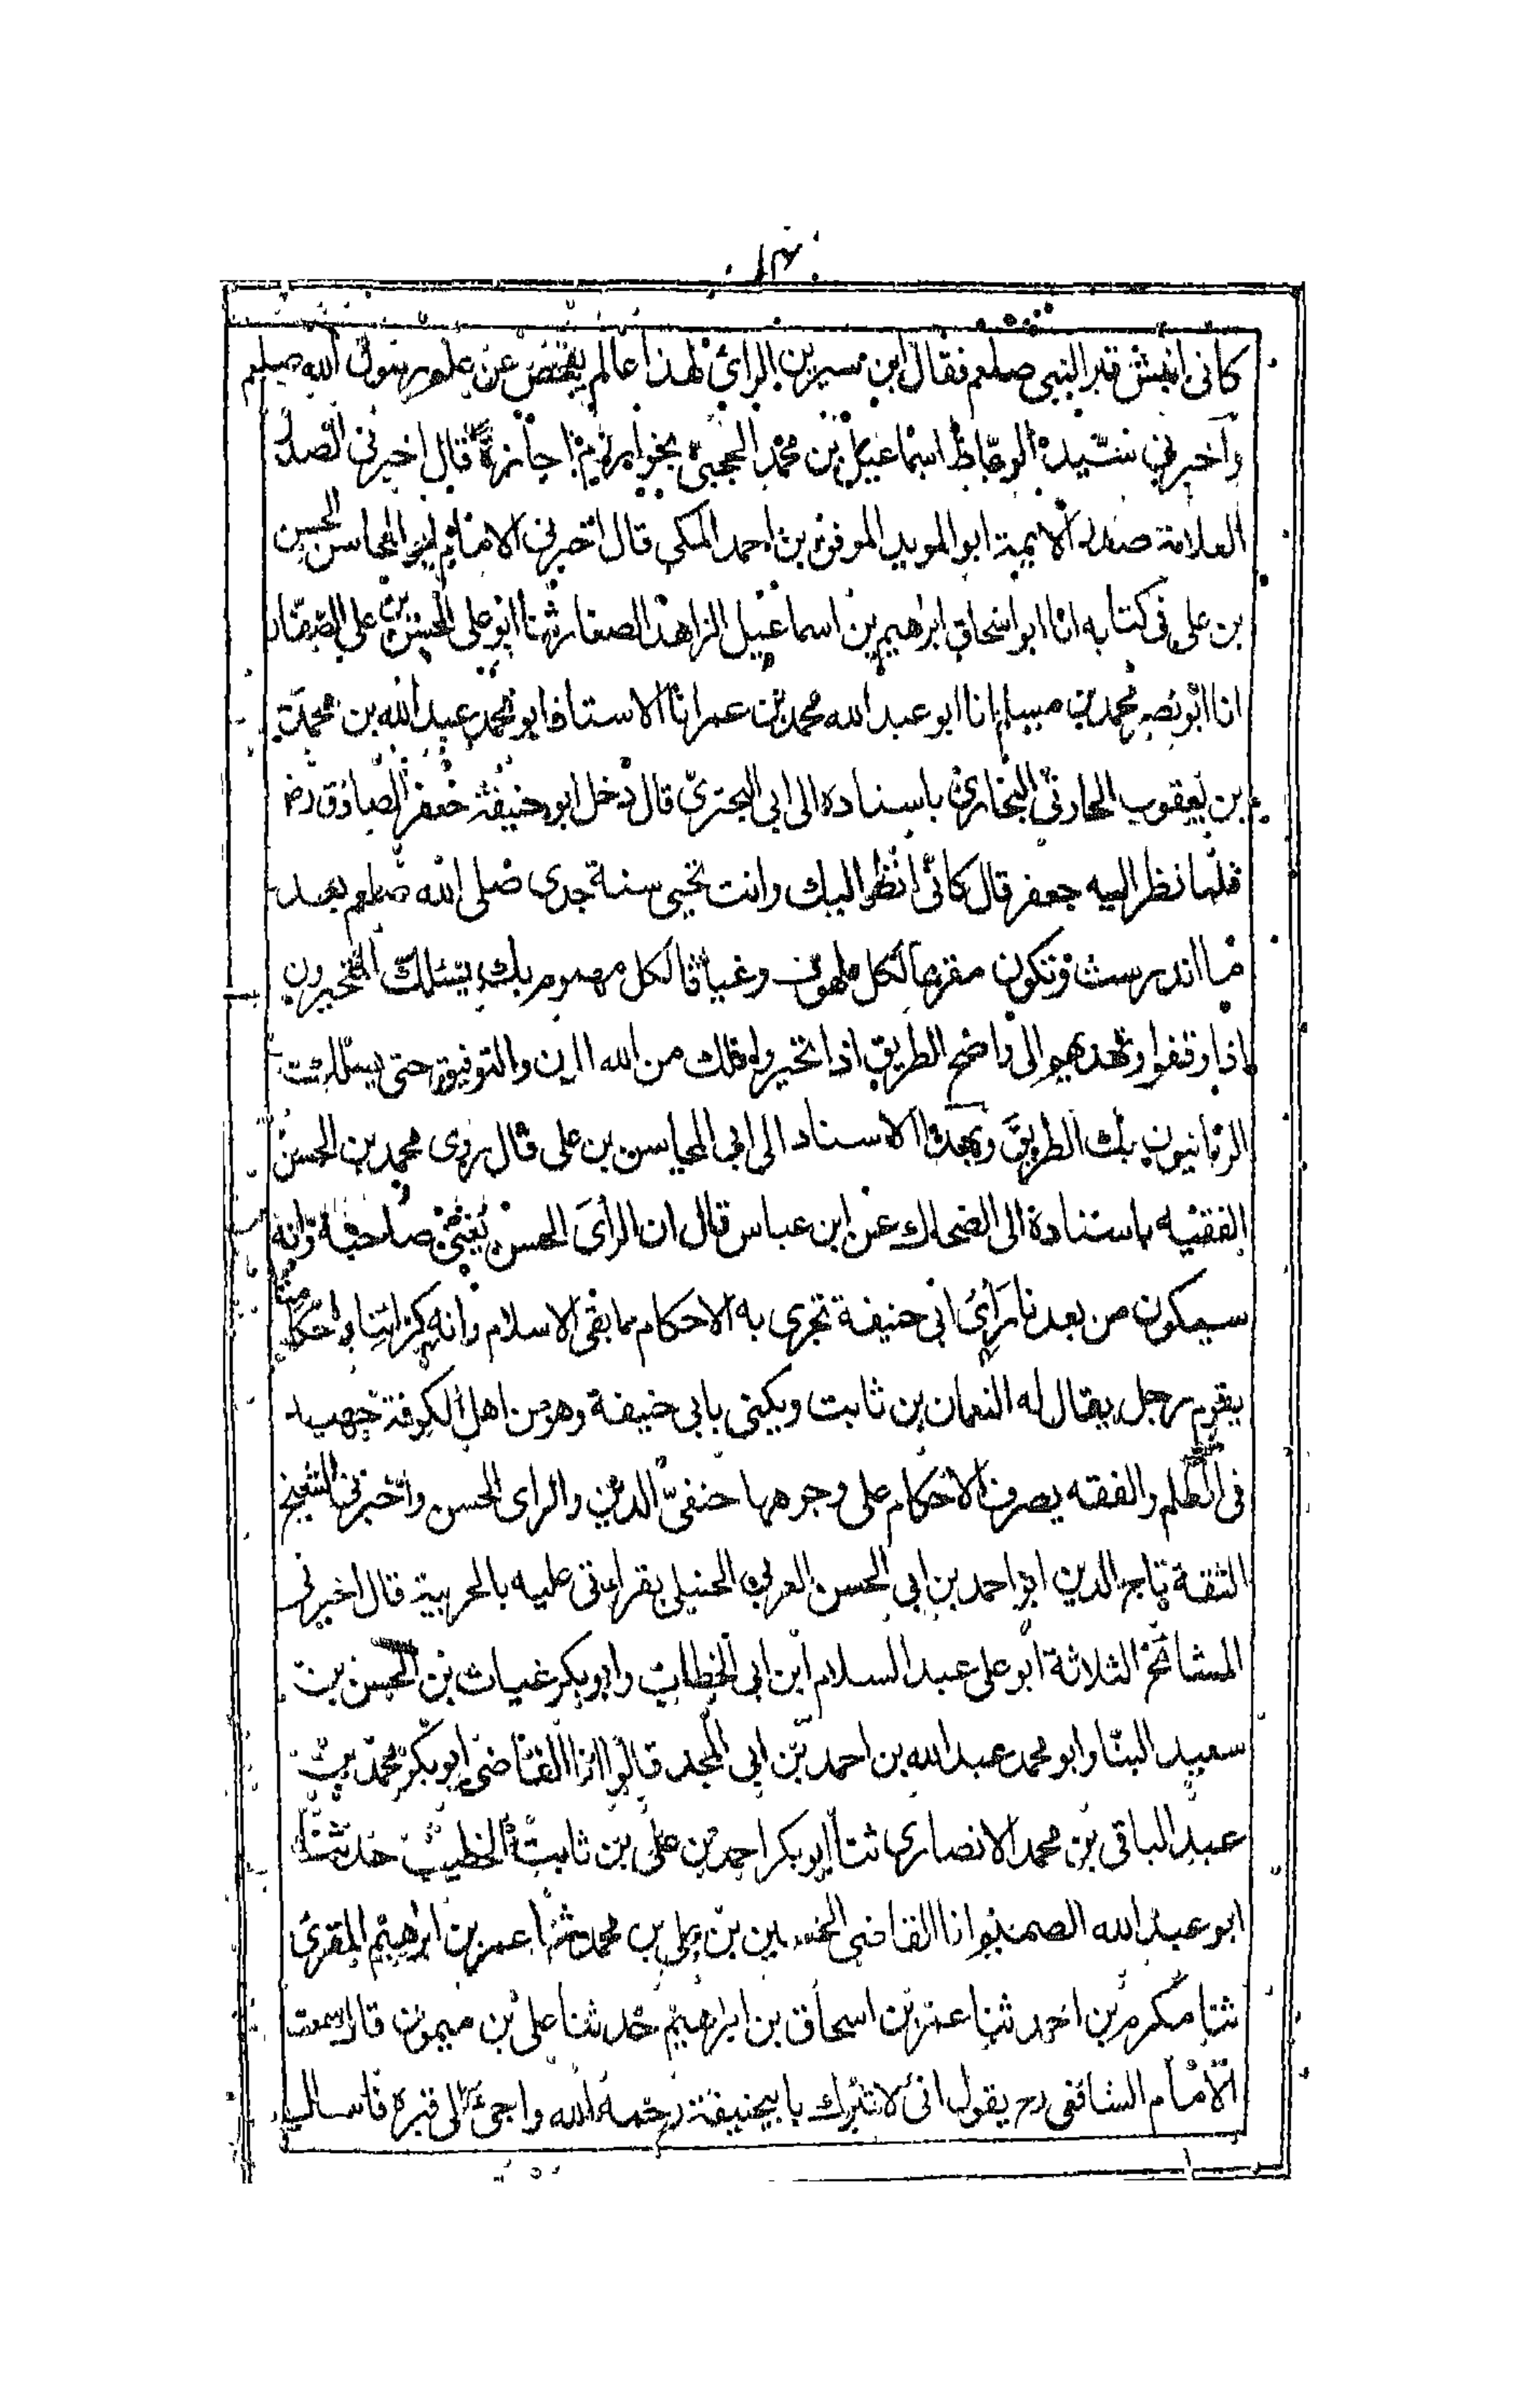 كانى انبش قبر النبى صلعم فقال ابن سيرين الرائ لهذا عالم يفحص عن علوم رسول الله صلعم
واخبرني سيد الوعاظ اسماعيل بن محمد الحجبى بخوارزم اجازة قال اخبرنى الصدر
العلامة صدر الايمة ابو المويد الموفق بن احمد المكى قال اخبرنى الامام ابو المحاسن الحسن
بن على فى كتابه انا ابو اسحاق ابرهيم بن اسماعيل الزاهد الصفار ثنا ابو على الحسن بن على الصفار
انا ابو نصر محمد بن مسلم انا ابو عبد الله محمد بن عمر انا الاستاذ ابو محمد عبد الله بن محمد
بن يعقوب الحارثى البخارى باسناده الى ابى البحترى قال دخل ابو حنيفة جعفر الصادق رض
فلما نظر اليه جعفر قال كانى انظر اليك وانت تحيى سنة جدى صلى الله صلعم بعد
ما اندرست وتكون مفزعا لكل ملهوف وغياثا لكل مهموم بك يسئلك المتحيرون
اذا وقفوا وتهديهم الى واضح الطريق اذا تحيروا فلك من الله العون والتوفيق حتى يسلك
الربانيون بك الطريق وبهذا الاسناد الى ابى المحاسن بن على قال روى محمد بن الحسن
الفقيه باسنادة الى الضحاك عن ابن عباس قال ان الراى الحسن صاحبه وانه
سيكون من بعدنا راى ابى حنيفة تجرى به الاحكام ما بقى الاسلام وانه كراينا واحكامنا
يقوم رجل يقال له النعمان بن ثابت ويكنى بابى حنيفة وهو من اهل الكوفة جهبد
فى العلم والفقه يصرف الاحكام على وجوهها حنفى الدين والراى الحسن واخبرنى الشيخ
الثقة تاج الدين ابو احمد بن ابى الحسن العربى الحنبلى بقراءتى عليه بالحربية قال اخبرنى
المشائخ الثلاثة ابو على عبد السلام ابن ابى الخطاب وابو بكر غياث بن الحسن بن
سعيد البنا وابو محمد عبد الله بن احمد بن ابى المجد قالوا انا القاضى ابو بكر محمد بن
عبد الباقى بن محمد الانصارى ثنا ابو بكر احمد بن على بن ثابت الخطيب حدثنا
ابو عبد الله الصميرى انا القاضى الحسين بن على بن محمد ثنا عمر بن ابرهيم المقرى
ثنا مكرم بن احمد ثنا عمر بن اسحاق بن ابرهيم حدثنا على بن ميمون قال سمعت
الامام الشافعى رح يقول انى لاتبرك بابيحنيفة رحمه الله واجى الى قبره فاسال